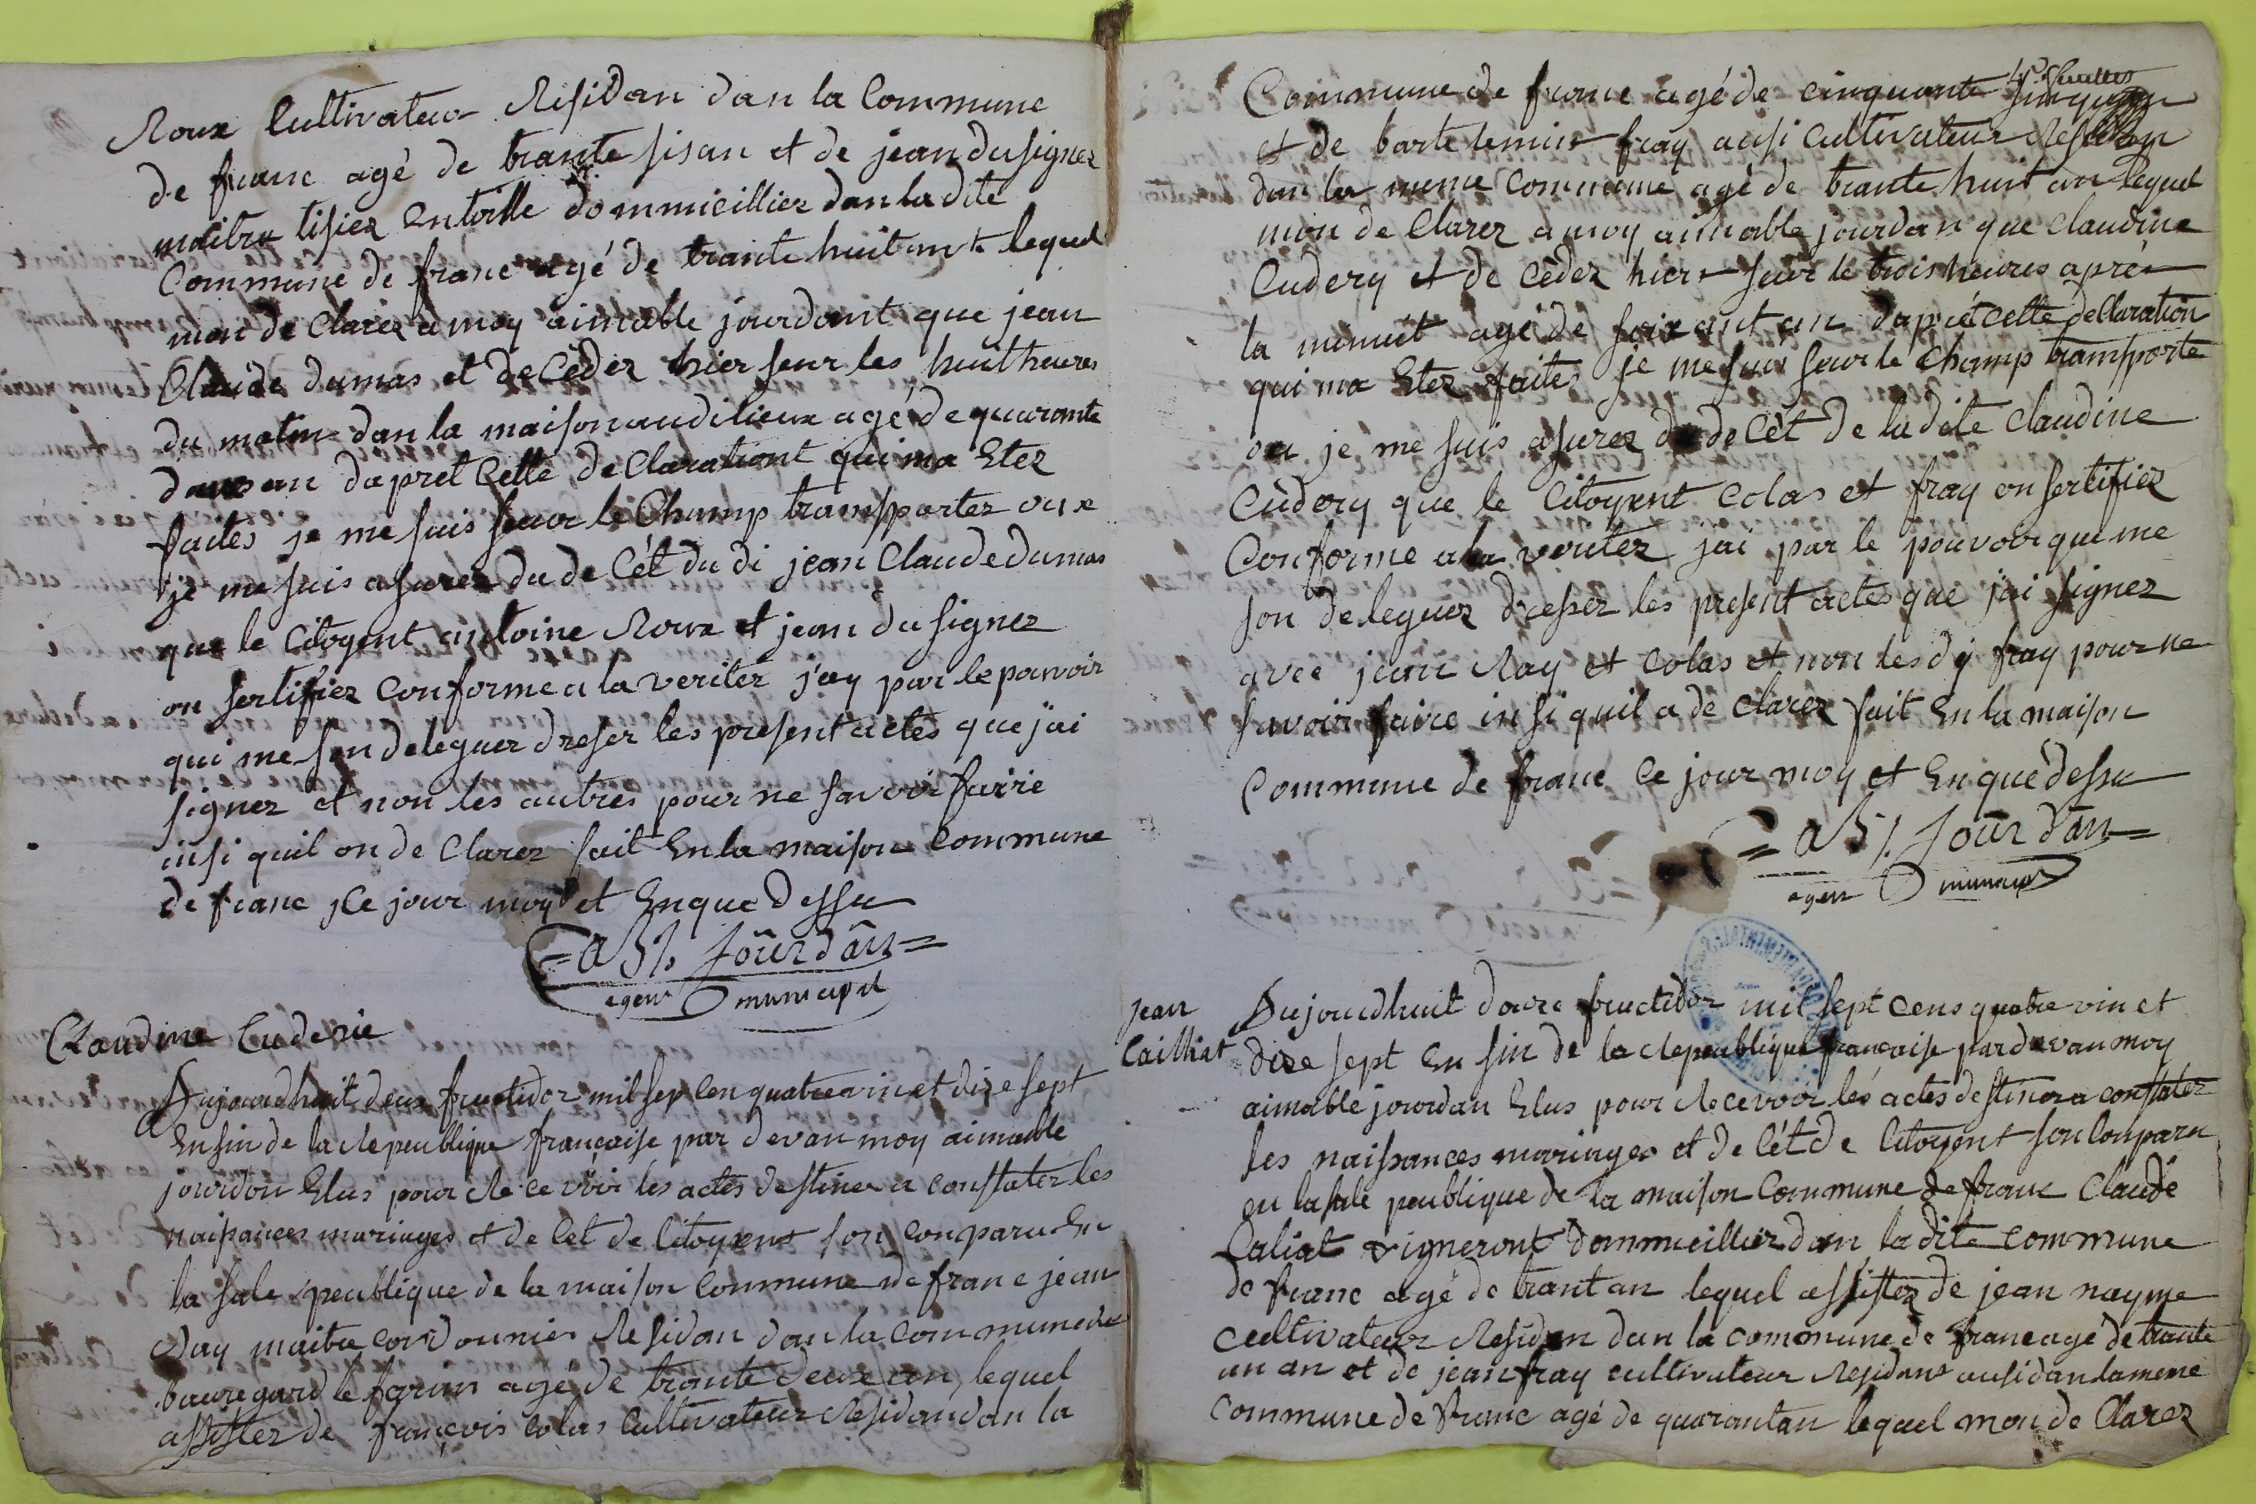 Roux Cultivateur Residan dan la Commune
de franc agé de trante sisan et de jean dusignez
maitre tisiez En toille dommicilliez dan la dite
Commune de franc agé de trante huitant lequel
mon de Clarez a moy aimable jourdant que jean
Claude dumas et de Cèdez hier sur les huit heures
du matin dan la maison audilieux agé de quarante
deux an daprèt Cette de Clarationt qui ma Etez
faites je me suis sur le Champ transpportez oux
je me suis asurez du de Cét du di jean Claude dumas
que le Citoyent antoine Roux et jean dusignez
on sertifiez Conforme a la veritez j'ay par le pouvoir
qui me son deleguez dreser les present actes que j'ai
signez et non les autres pour ne savoir faire
insi quil on de Clarez fait En la maison Commune
de franc Ce jour moy et Enque dessu
= a B j. Jourdan =
agent municipal
Claudine Cuderie
Aujourdhuit deux fructidor mil sep Cen quatre vin et dix sept
En sin de la Republique française par devan moy aimable
jourdan Elus pour Recevoir les actes destinez a constater les
naissances mariages et de Cet de Citoyens son Conparu En
la sale peublique de la maison Commune de franc jean
Ray maitre Cordonnier Residan dan la Commune de
bauregard le farin agé de trante deux an lequel
assistez de françois Colas Cultivateur Residan dan la
4e feuillet
Commune de franc agé de cinquante
et de bartelemis fray ausi Cultivateur Residan
dan la meme Commune agé de trante huit an lequel
mon de Clarez a moy aimable jourdan que Claudine
Cudery et de Cèdez hier sur le trois heures aprèt
la minuit agé de soixant an daprét cette declaration
qui ma Etez faites je me suis sur le Champ transporte
ou je me suis asurez du de Cèt de la dite Claudine
Cudery que le Citoyent Colas et fray on sertifiez
Conforme a la veritez jai par le pouvoir que me
son deleguez dresser les present actes que j'ai signez
avec jean Ray et Colas et non les dy fray pour ne
savoir faire insi quil a de Clarez fait En la maison
Commune de franc Ce jour moy et Enque dessu
= a B j. Jourdan =
agent municipal
jean
Cailliat
Aujourdhuit douze fructidor mil sept cens quatre vin et
dixe sept En sin de la Republique française par devan moy
aimable jourdan Elus pour Recevoir les actes destinez a constater
les naissances mariages et de Cét de Citoyent son Conparu
en la sale peublique de la maison Commune de franc Claude
Caliat vigneront dommicillier dan la dite commune
de franc agé de trant an lequel assistez de jean nayme
Cultivateur Residan dan la commune de franc agé de trante
un an et de jean fray cultivateur Residant ausi dan la meme
Commune de franc agé de quarantan lequel mon de Clarez